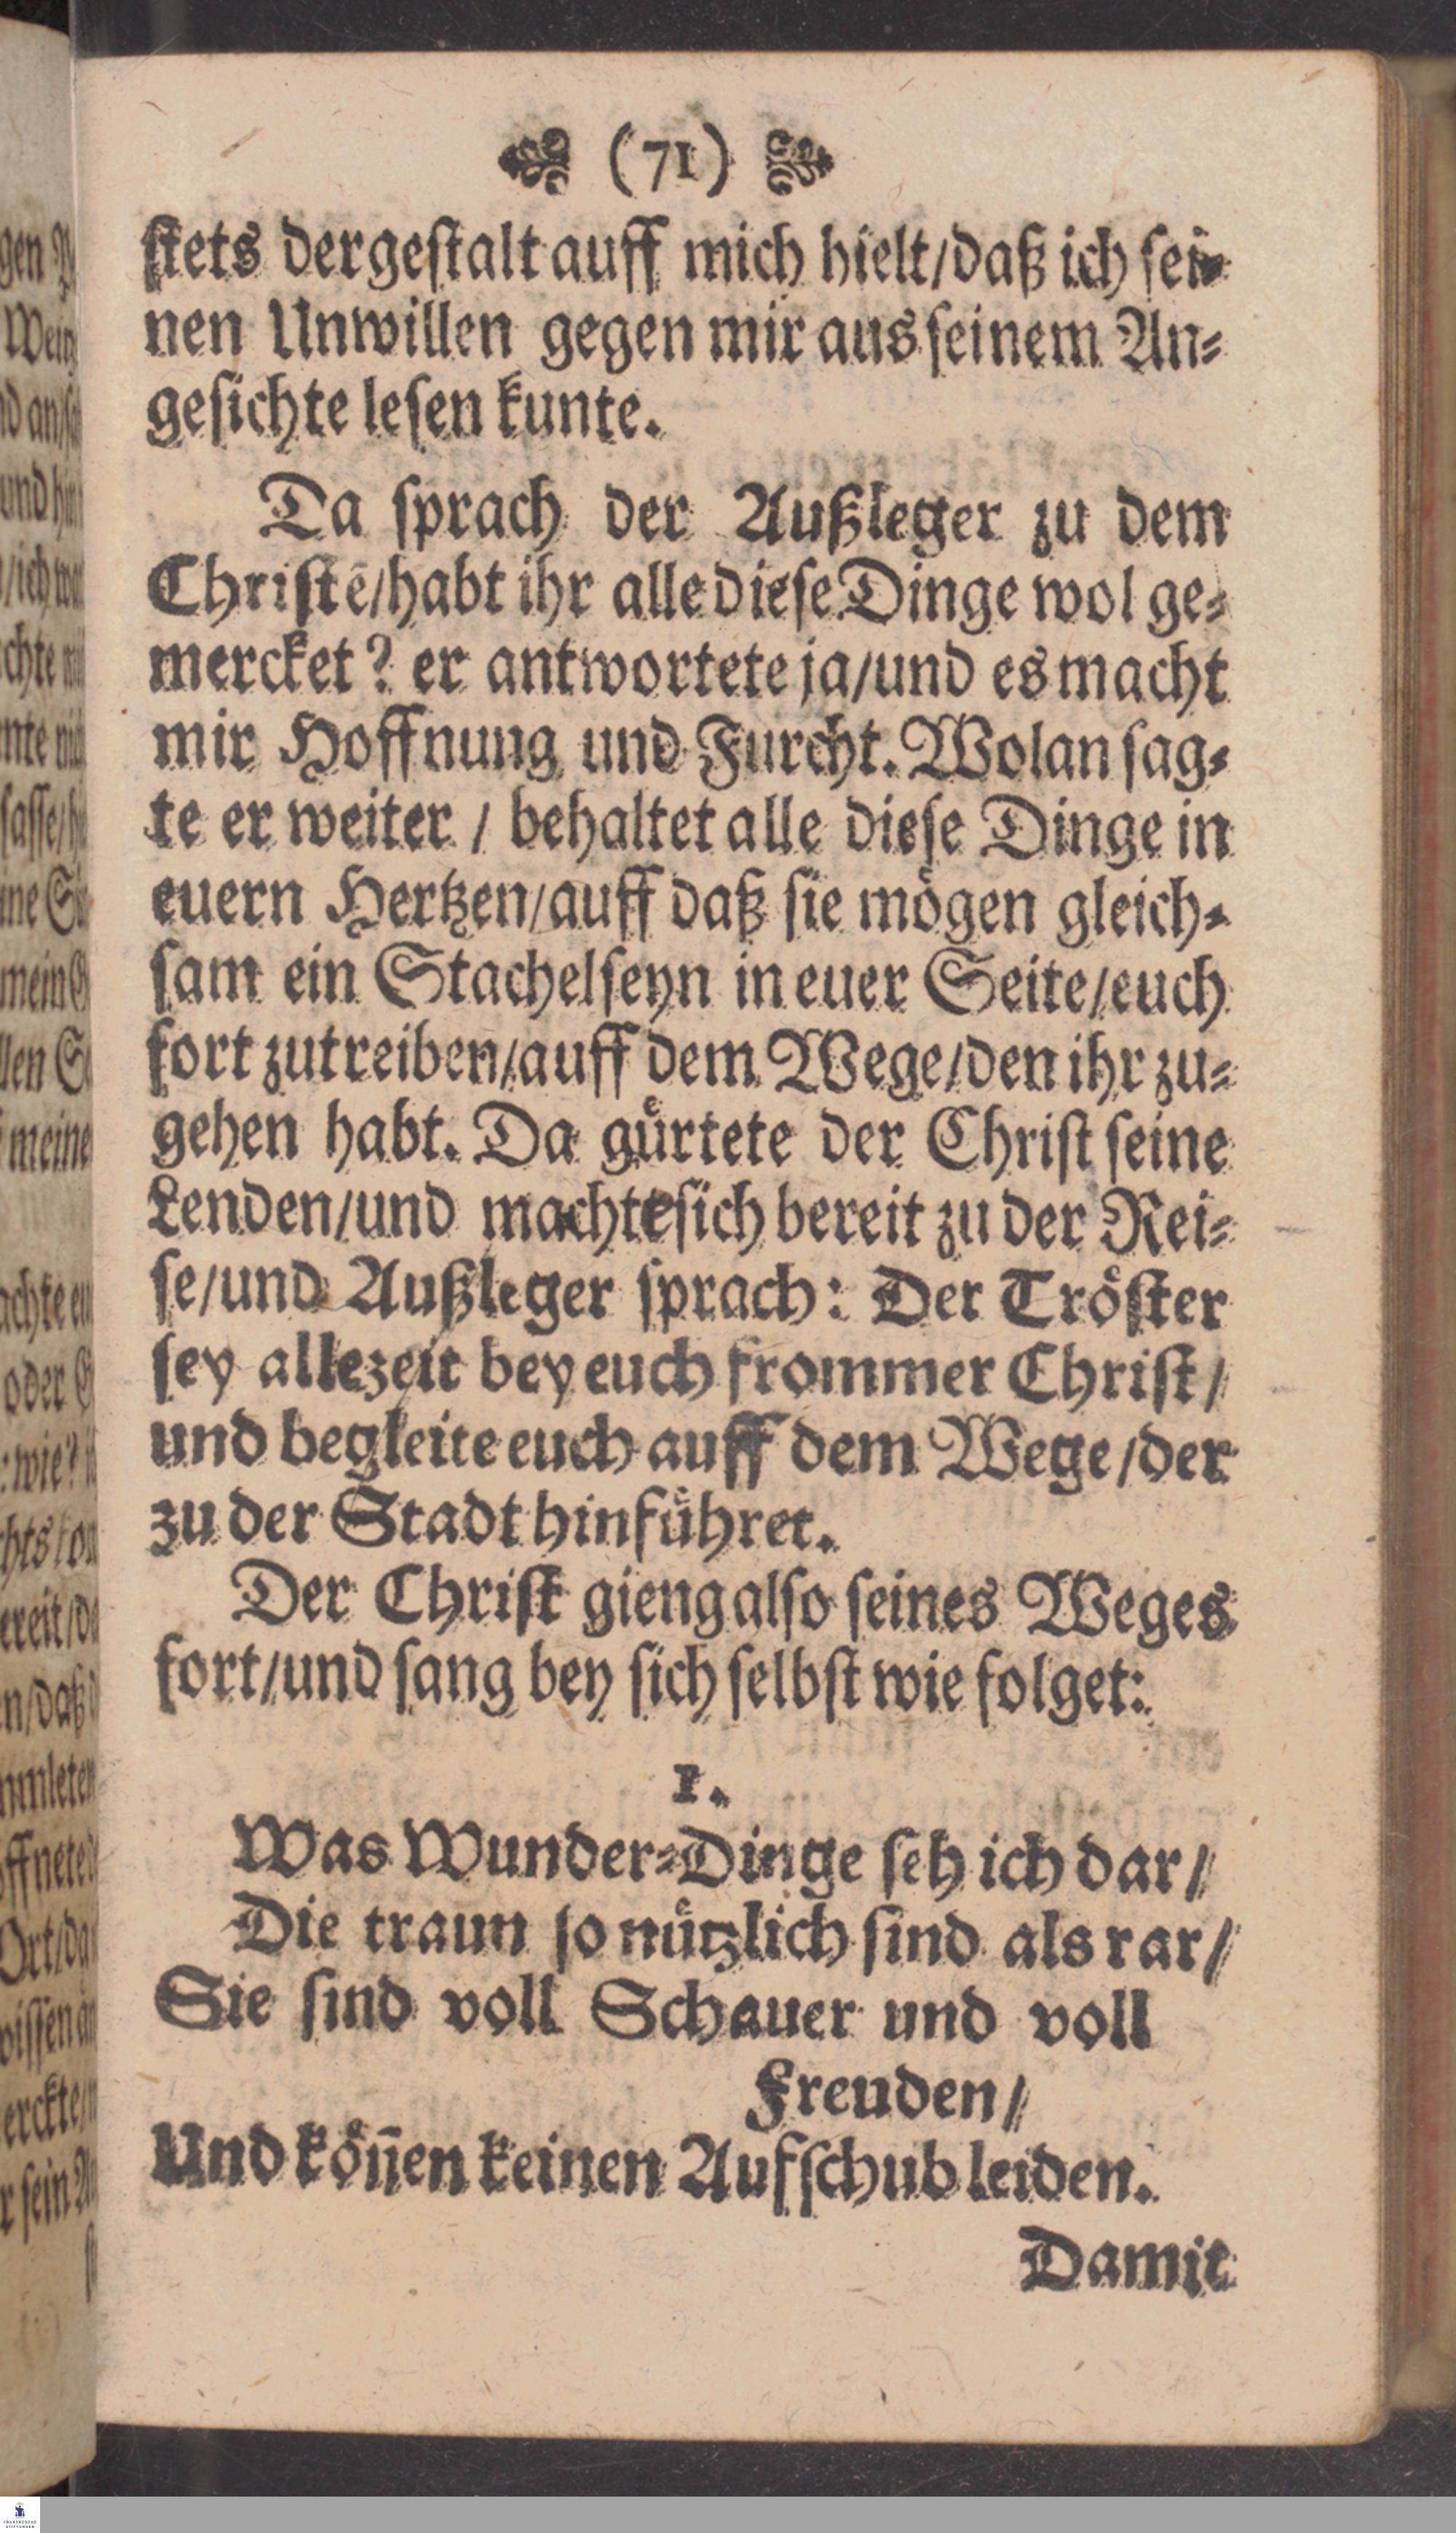 (71)
ſtets dergeſtalt auff mich hielt/daß ich ſei-
nen Unwillen gegen mir aus ſeinem An-
geſichte leſen kunte.
Da ſprach der Außleger zu dem
Chriſtē/habt ihr alle dieſe Dinge wol ge-
mercket? er antwortete ja/und es macht
mir Hoffnung und Furcht. Wolan ſag-
te er weiter / behaltet alle dieſe Dinge in
euern Hertzen/auff daß ſie moͤgen gleich-
ſam ein Stachel ſeyn in euer Seite/euch
fort zutreiben/auff dem Wege/den ihr zu-
gehen habt. Da guͤrtete der Chriſt ſeine
Lenden/und machte ſich bereit zu der Rei-
ſe/und Außleger ſprach: Der Troͤſter
ſey allezeit bey euch frommer Chriſt/
und begleite euch auff dem Wege/der
zu der Stadt hinfuͤhret.
Der Chriſt gieng alſo ſeines Weges
fort/und ſang bey ſich ſelbſt wie folget:
1.
Was Wunder-Dinge ſeh ich dar/
Die traun ſo nuͤtzlich ſind als rar/
Sie ſind voll Schauer und voll
Freuden/
Und koͤñen keinen Aufſchub leiden.
Damit